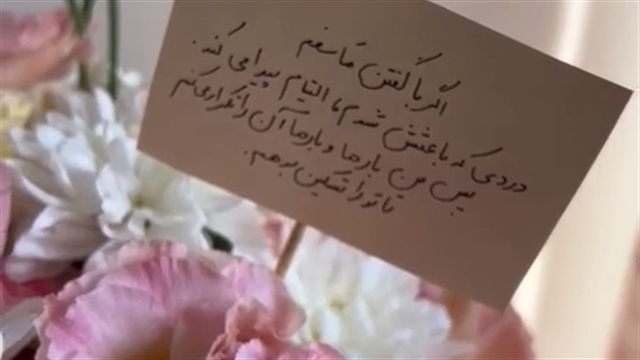 اگر با گفتن متاسفم
دردی که باعثش شدم، التیام پیدا می کند.
پس من بارها و بارها آن را تکرار می کنم
تا تو را تسکین بدهم.